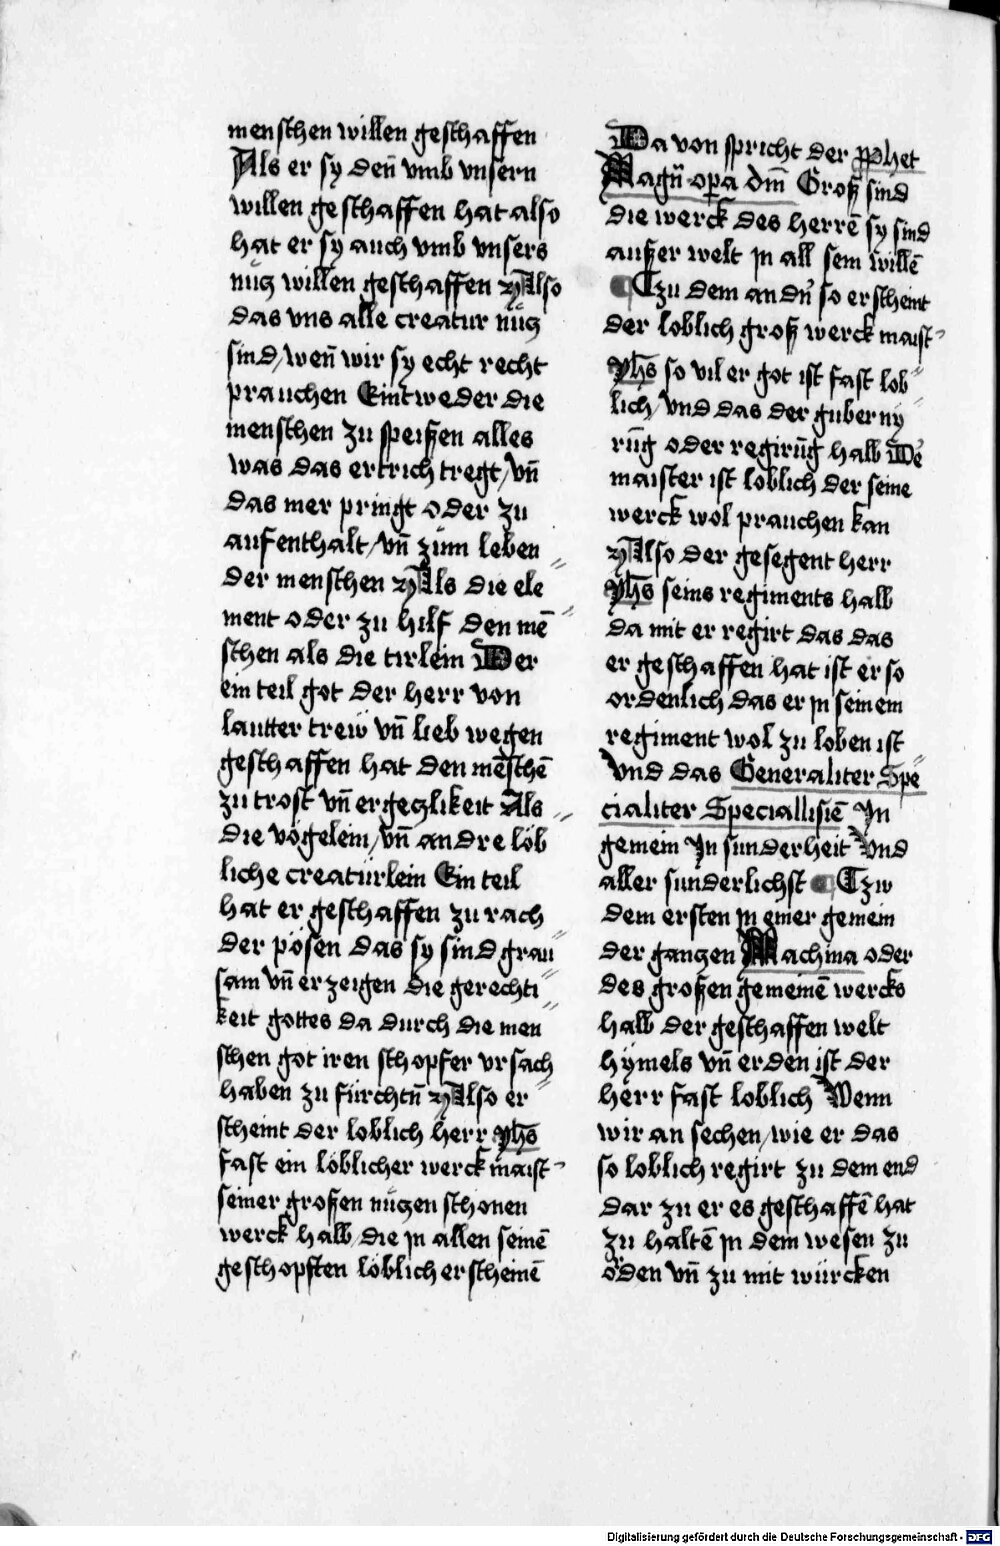 menschen willen geschaffen
Als er sy deñ vmb vnsern
willen geschaffen hat also
hat er sy auch vmb vnsers
nücz willen geschaffen Also
das vns alle creatur nücz
sind / weñ wir sy echt recht
prauchen Eintweder die
menschen zu speißen alles
was das ertrich tregt / vñ
das mer pringt oder zu
aufenthalt / vñ zům leben
der menschen Als die ele
ment oder zu hilf den mē
schen als die tirlein Der
ein teil got der herr von
lautter trew vñ lieb wegen
geschaffen hat den mēschē
zu trost vñ ergeczlikeit Als
die vögelein / vñ andre löb
liche creatürlein Ein teil
hat er geschaffen zu rach
der pösen das sy sind grau
sam vñ erzeigen die gerechti
keit gottes da durch die men
schen got iren schopfer vrsach
haben zu fürchtñ Also er
scheint der loblich herr yh̄s
fast ein löblicher werck maist
seiner großen nüczen schonen
werck halb / die in allen seinē
geschopften löblich erscheinē
Da von spricht der pphet
Magñ opa dm̄ Groß sind
die werck des herrē sy sind
außer welt in all sein willē
Tzu dem andn̄ so erscheint
der loblich groß werck maist
yh̄s so vil er got ist fast lob
lich / vnd das der guberny
rūg oder regirūg halb Dē
maister ist loblich der seine
werck wol prauchen kan
Also der gesegent herr
yh̄s seins regiments halb
da mit er regirt das das
er geschaffen hat ist er so
ordenlich das er in seinem
regiment wol zu loben ist
Vnd das Generaliter Spe
cialiter Speciallisiē In
gemein In sunderheit Vnd
aller sunderlichst Tzw
dem ersten in einer gemein
der ganczen Machina oder
des großen gemeinē wercks
halb der geschaffen welt
hymels vñ erden ist der
herr fast loblich Wenn
wir an sechen / wie er das
so loblich regirt zu dem end
dar zu er es geschaffē hat
zu haltē in dem wesen zu
öden vñ zu mit würcken
Digitalisierung gefördert durch die Deutsche Forschungsgemeinschaft - DFG